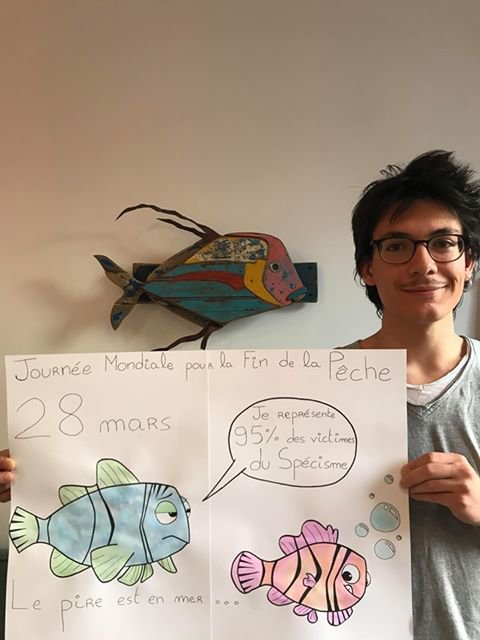 Journée Mondiale pour la Fin de la Pêche
28 mars
Je représente
95% des victimes
du Spécisme
Le pire est en mer ...